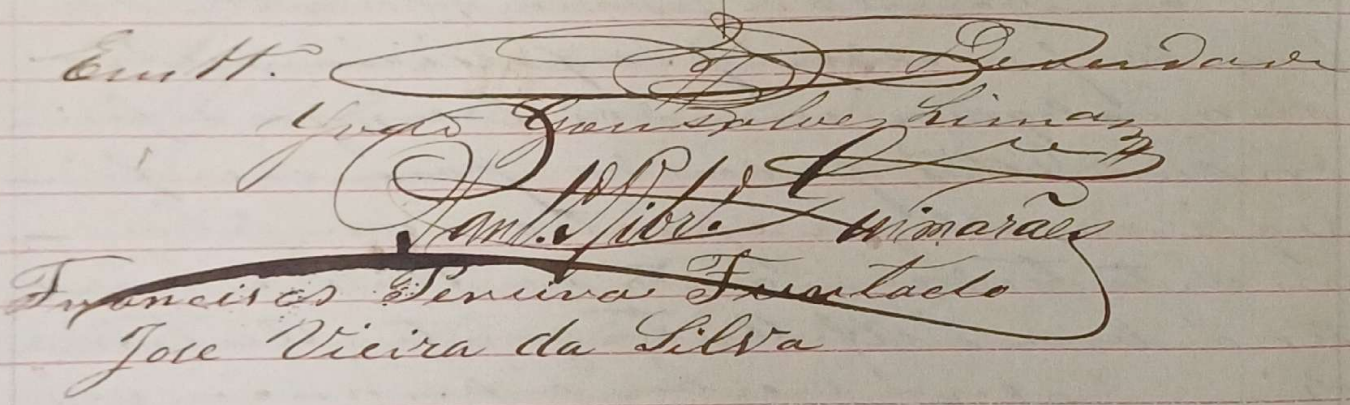 Em tt.
João Gonsalves Lima
Ant. Ribr. Guimarães
Francisco Pereira Furtado
Jose Vieira da Silva